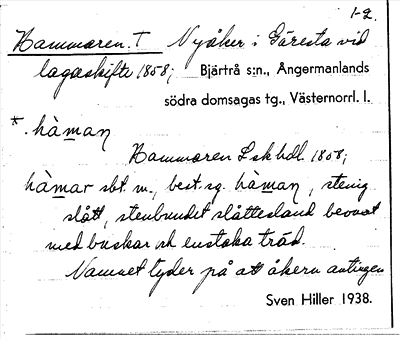 1-2.
Hammaren. T Nyåker i Gåresta vid
lagaskifte 1858; Bjärtrå s:n., Ångermanlands
södra domsagas tg., Västernorrl. l.
*. hàmaɳ
Hammaren Lskhdl. 1858;
hàmar sbt. m., best. sg. hàmaɳ, stenig
slått, stenbundet slåttesland bevuxet
med buskar ock enstaka träd.
Namnet tyder på att åkern antingen
Sven Hiller 1938.